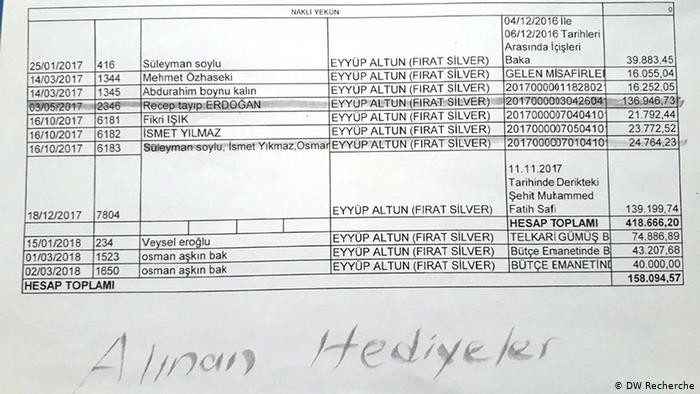 NAKLİ YEKÜN 0
25/01/2017 416 Süleyman soylu EYYÜP ALTUN (FIRAT SİLVER) 04/12/2016 İle
06/12/2016 Tarihleri
Arasında İçişleri
Baka 39.883,45
14/03/2017 1344 Mehmet Özhaseki EYYÜP ALTUN (FIRAT SİLVER) GELEN MİSAFİRLE 16.055,04
14/03/2017 1345 Abdurahim boynu kalın EYYÜP ALTUN (FIRAT SİLVER) 2017000001182802 16.252,05
03/05/2017 2346 Recep tayıp ERDOĞAN EYYÜP ALTUN (FIRAT SİLVER) 2017000003042604 136.946,73
16/10/2017 6181 Fikri IŞIK EYYÜP ALTUN (FIRAT SİLVER) 2017000007040410 21.792,44
16/10/2017 6182 İSMET YILMAZ EYYÜP ALTUN (FIRAT SİLVER) 2017000007050410 23.772,52
16/10/2017 6183 Süleyman soylu, İsmet Yıkmaz,Osmar EYYÜP ALTUN (FIRAT SİLVER) 2017000007010410 24.764,23
18/12/2017 7804 EYYÜP ALTUN (FIRAT SİLVER) 11.11.2017
Tarihinde Derikteki
Şehit Muhammed
Fatih Safi 139.199,74
HESAP TOPLAMI 418.666,20
15/01/2018 234 Veysel eroğlu EYYÜP ALTUN (FIRAT SİLVER) TELKARİ GÜMÜŞ B 74.886,89
01/03/2018 1523 osman aşkın bak EYYÜP ALTUN (FIRAT SİLVER) Bütçe Emanetinde B 43.207,68
02/03/2018 1650 osman aşkın bak EYYÜP ALTUN (FIRAT SİLVER) BÜTÇE EMANETİND 40.000,00
HESAP TOPLAMI 158.094,57
Alınan Hediyeler
© DW Recherche